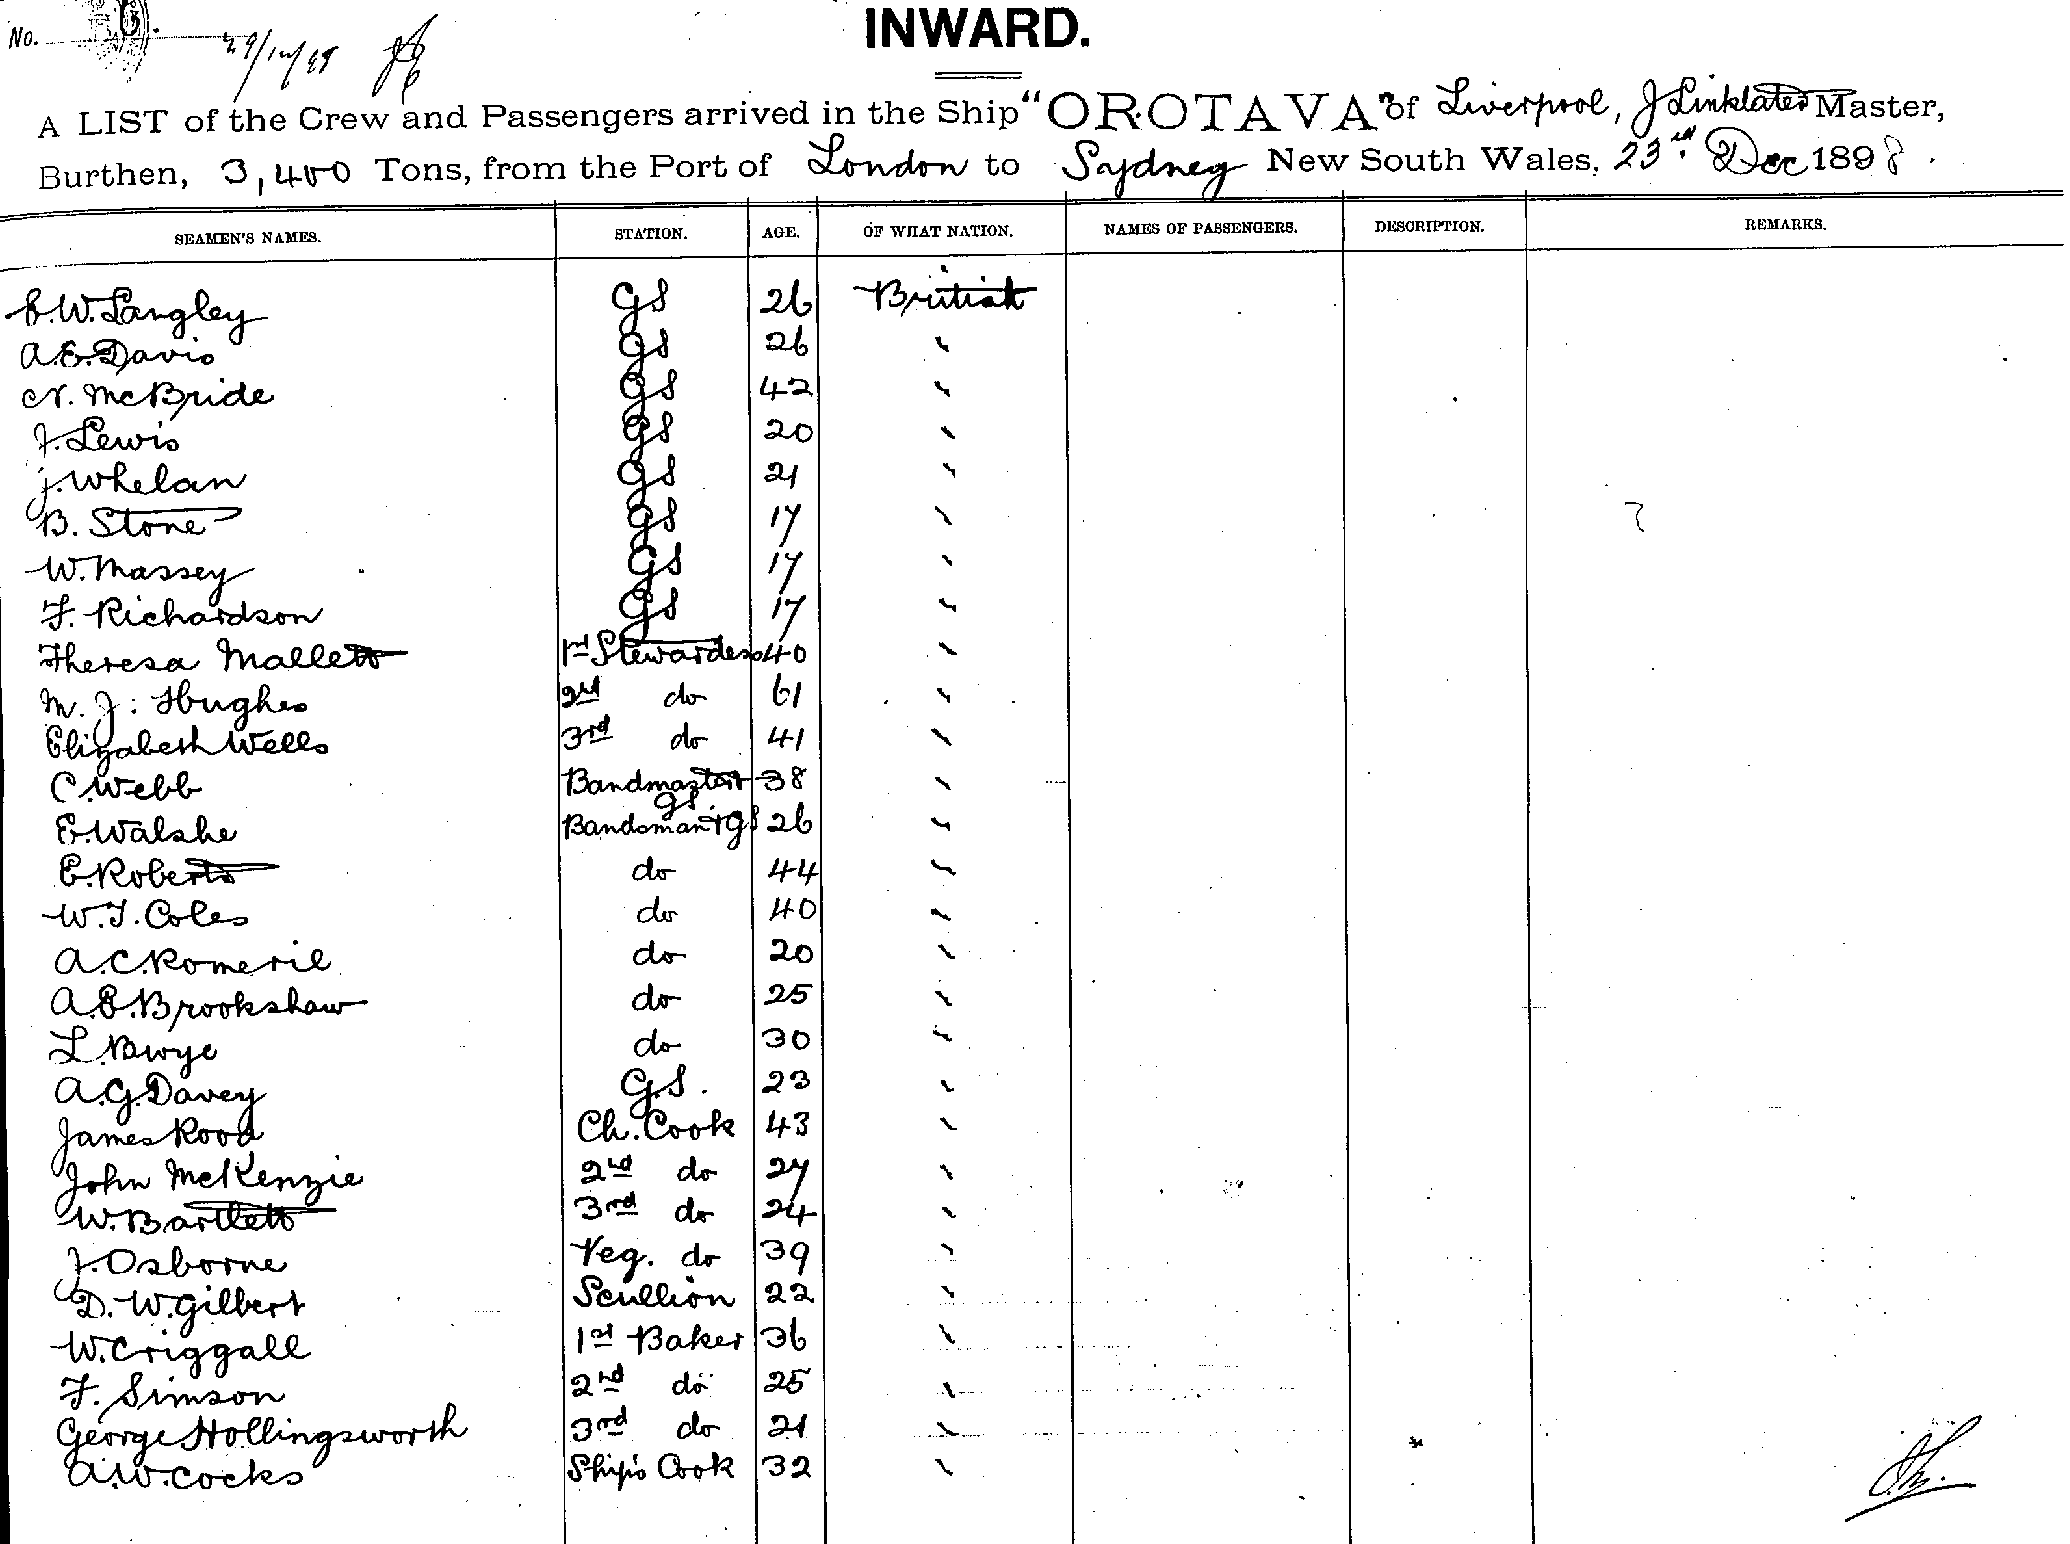 No.
29/12/98
INWARD.
A LIST of the Crew and Passengers arrived in the Ship "OROTAVA" of Liverpool, J Linklater Master,
Burthen, 3,400 Tons, from the Port of London to Sydney New South Wales, 23rd Dec 1898.
SEAMEN'S NAMES. STATION. AGE. OF WHAT NATION. NAMES OF PASSENGERS. DESCRIPTION. REMARKS.
E.W. Langley GS 26 British
A.E. Davis GS 26 "
N. McBride GS 42 "
J. Lewis GS 20 "
J. Whelan GS 21 "
B. Stone GS 17 "
W. Massey GS 17 "
F. Richardson GS 17 "
Theresa Mallett 1st Stewardess 40 "
M. J. Hughes 2nd do 61 "
Elizabeth Wells 3rd do 41 "
C. Webb Bandmaster GS 38 "
E. Walshe Bandsman + GS 26 "
E. Roberts do 44 "
W.T. Coles do 40 "
A.C. Romeril do 20 "
A.E. Brookshaw do 25 "
L. Bwye do 30 "
A.G. Davey G.S. 23 "
James Rood Ch. Cook 43 "
John McKenzie 2nd do 27 "
W. Bartlett 3rd do 24 "
J. Osborne Veg. do 39 "
D. W. Gilbert Scullion 22 "
W. Criggall 1st Baker 36 "
F. Simson 2nd do 25 "
George Hollingsworth 3rd do 21 "
A.W. Cocks Ship's Cook 32 "